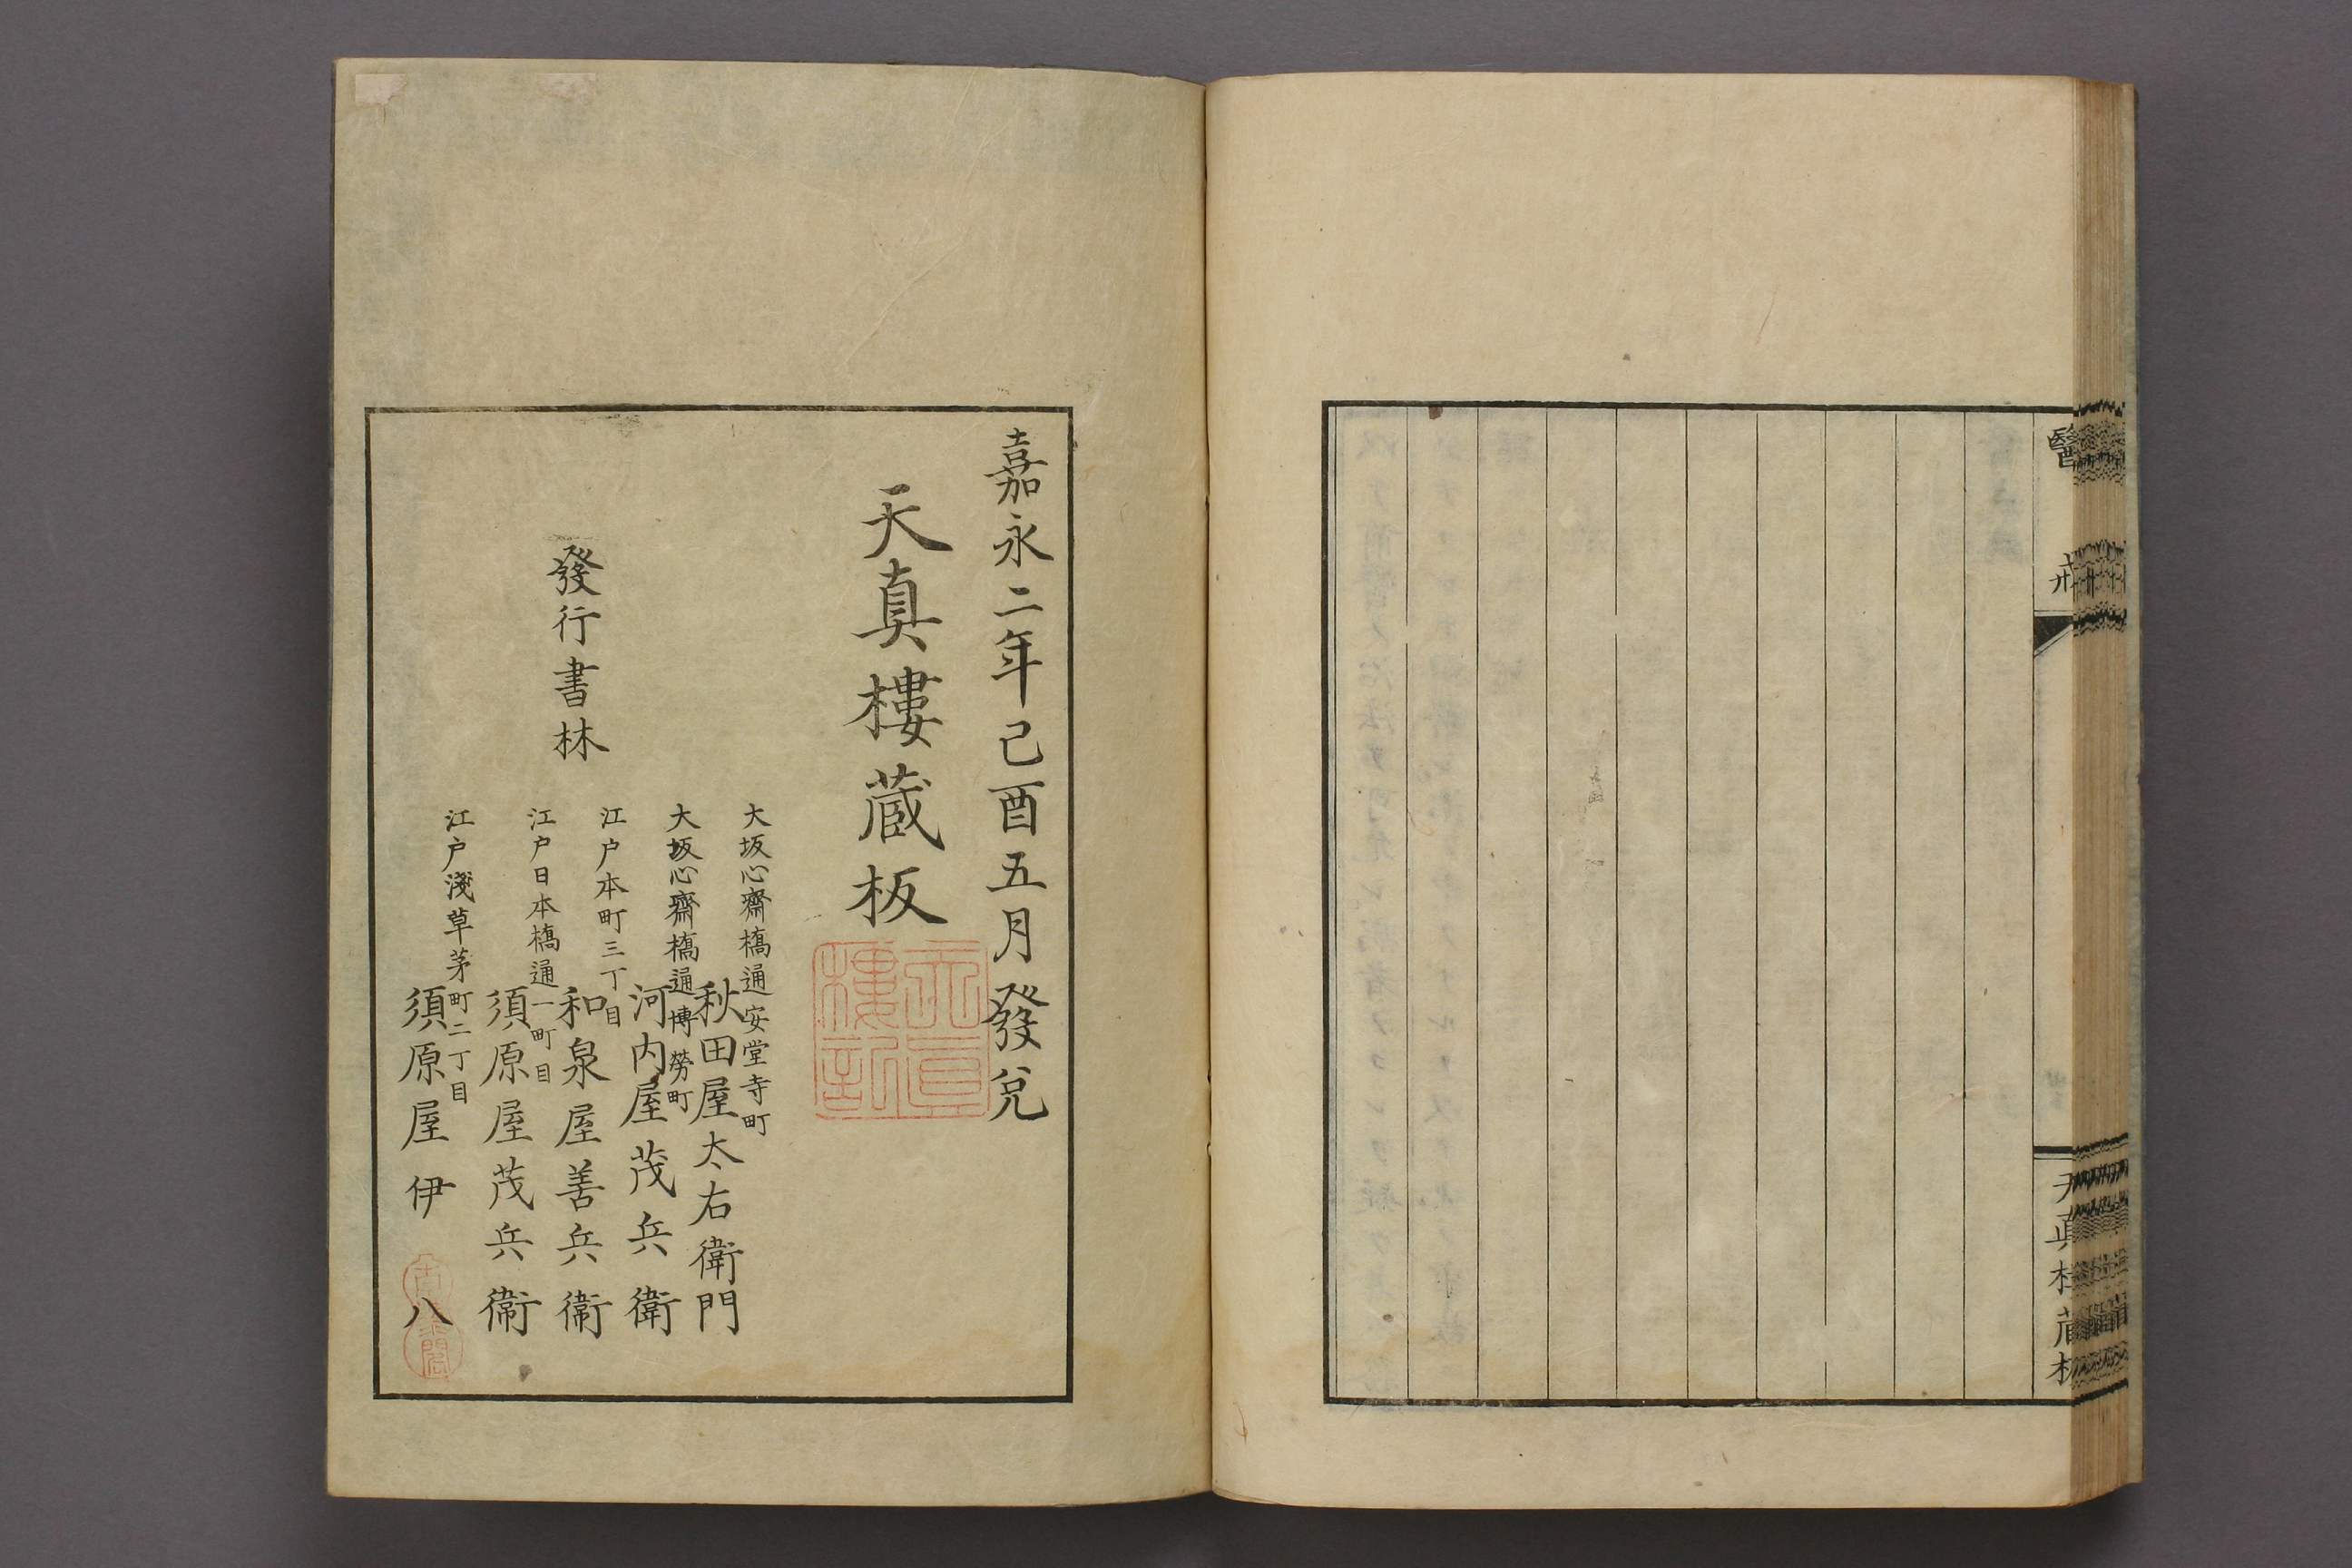 醫
戒
天真樓蔵板
嘉永二年己酉五月發兌
天真樓蔵板
天真樓記
大坂心齋橋通安堂寺町
秋田屋太右衛門
大坂心齋橋通博勞町
河内屋茂兵衛
江戸本町三丁目
和泉屋善兵衛
江戸日本橋通一町目
須原屋茂兵衛
江戸淺草茅町二丁目
須原屋伊八
發行書林